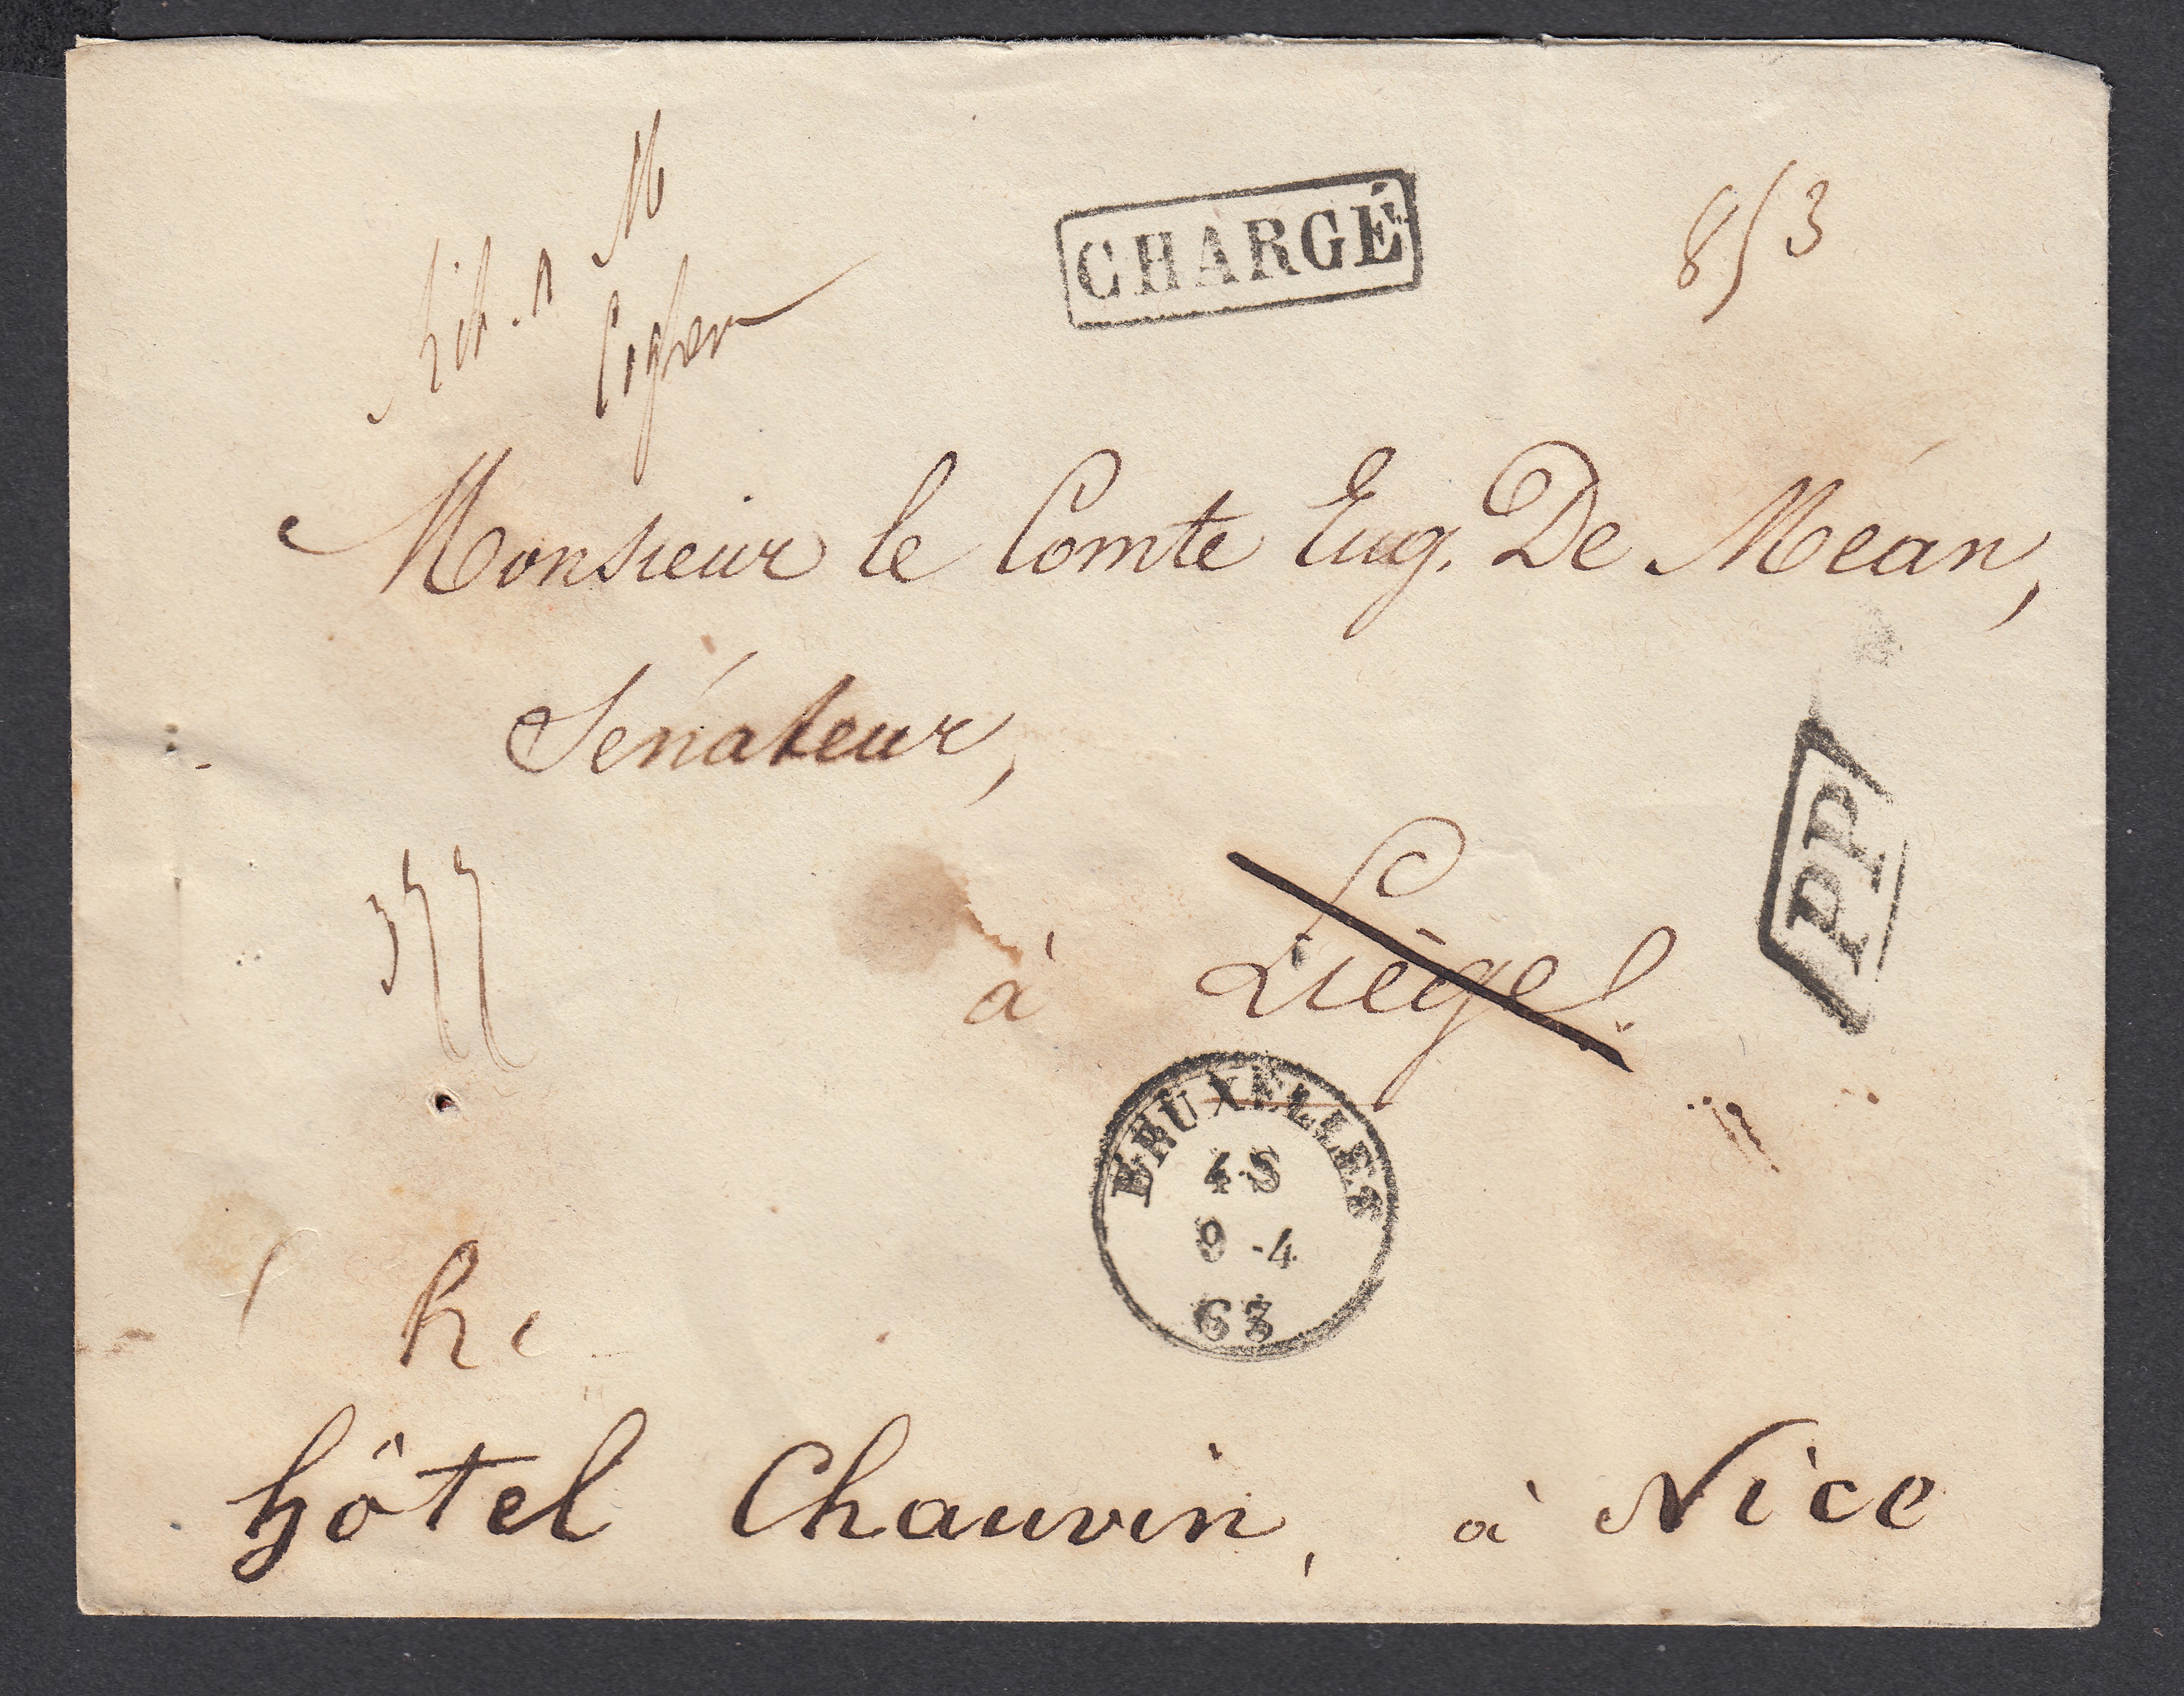 CHARGÉ
853
Monsieur le Comte Eug. De Méan,
Sénateur,
PP
à Liége
BRUXELLES
4·S
9 -4
63
hôtel Chauvin, à Nice